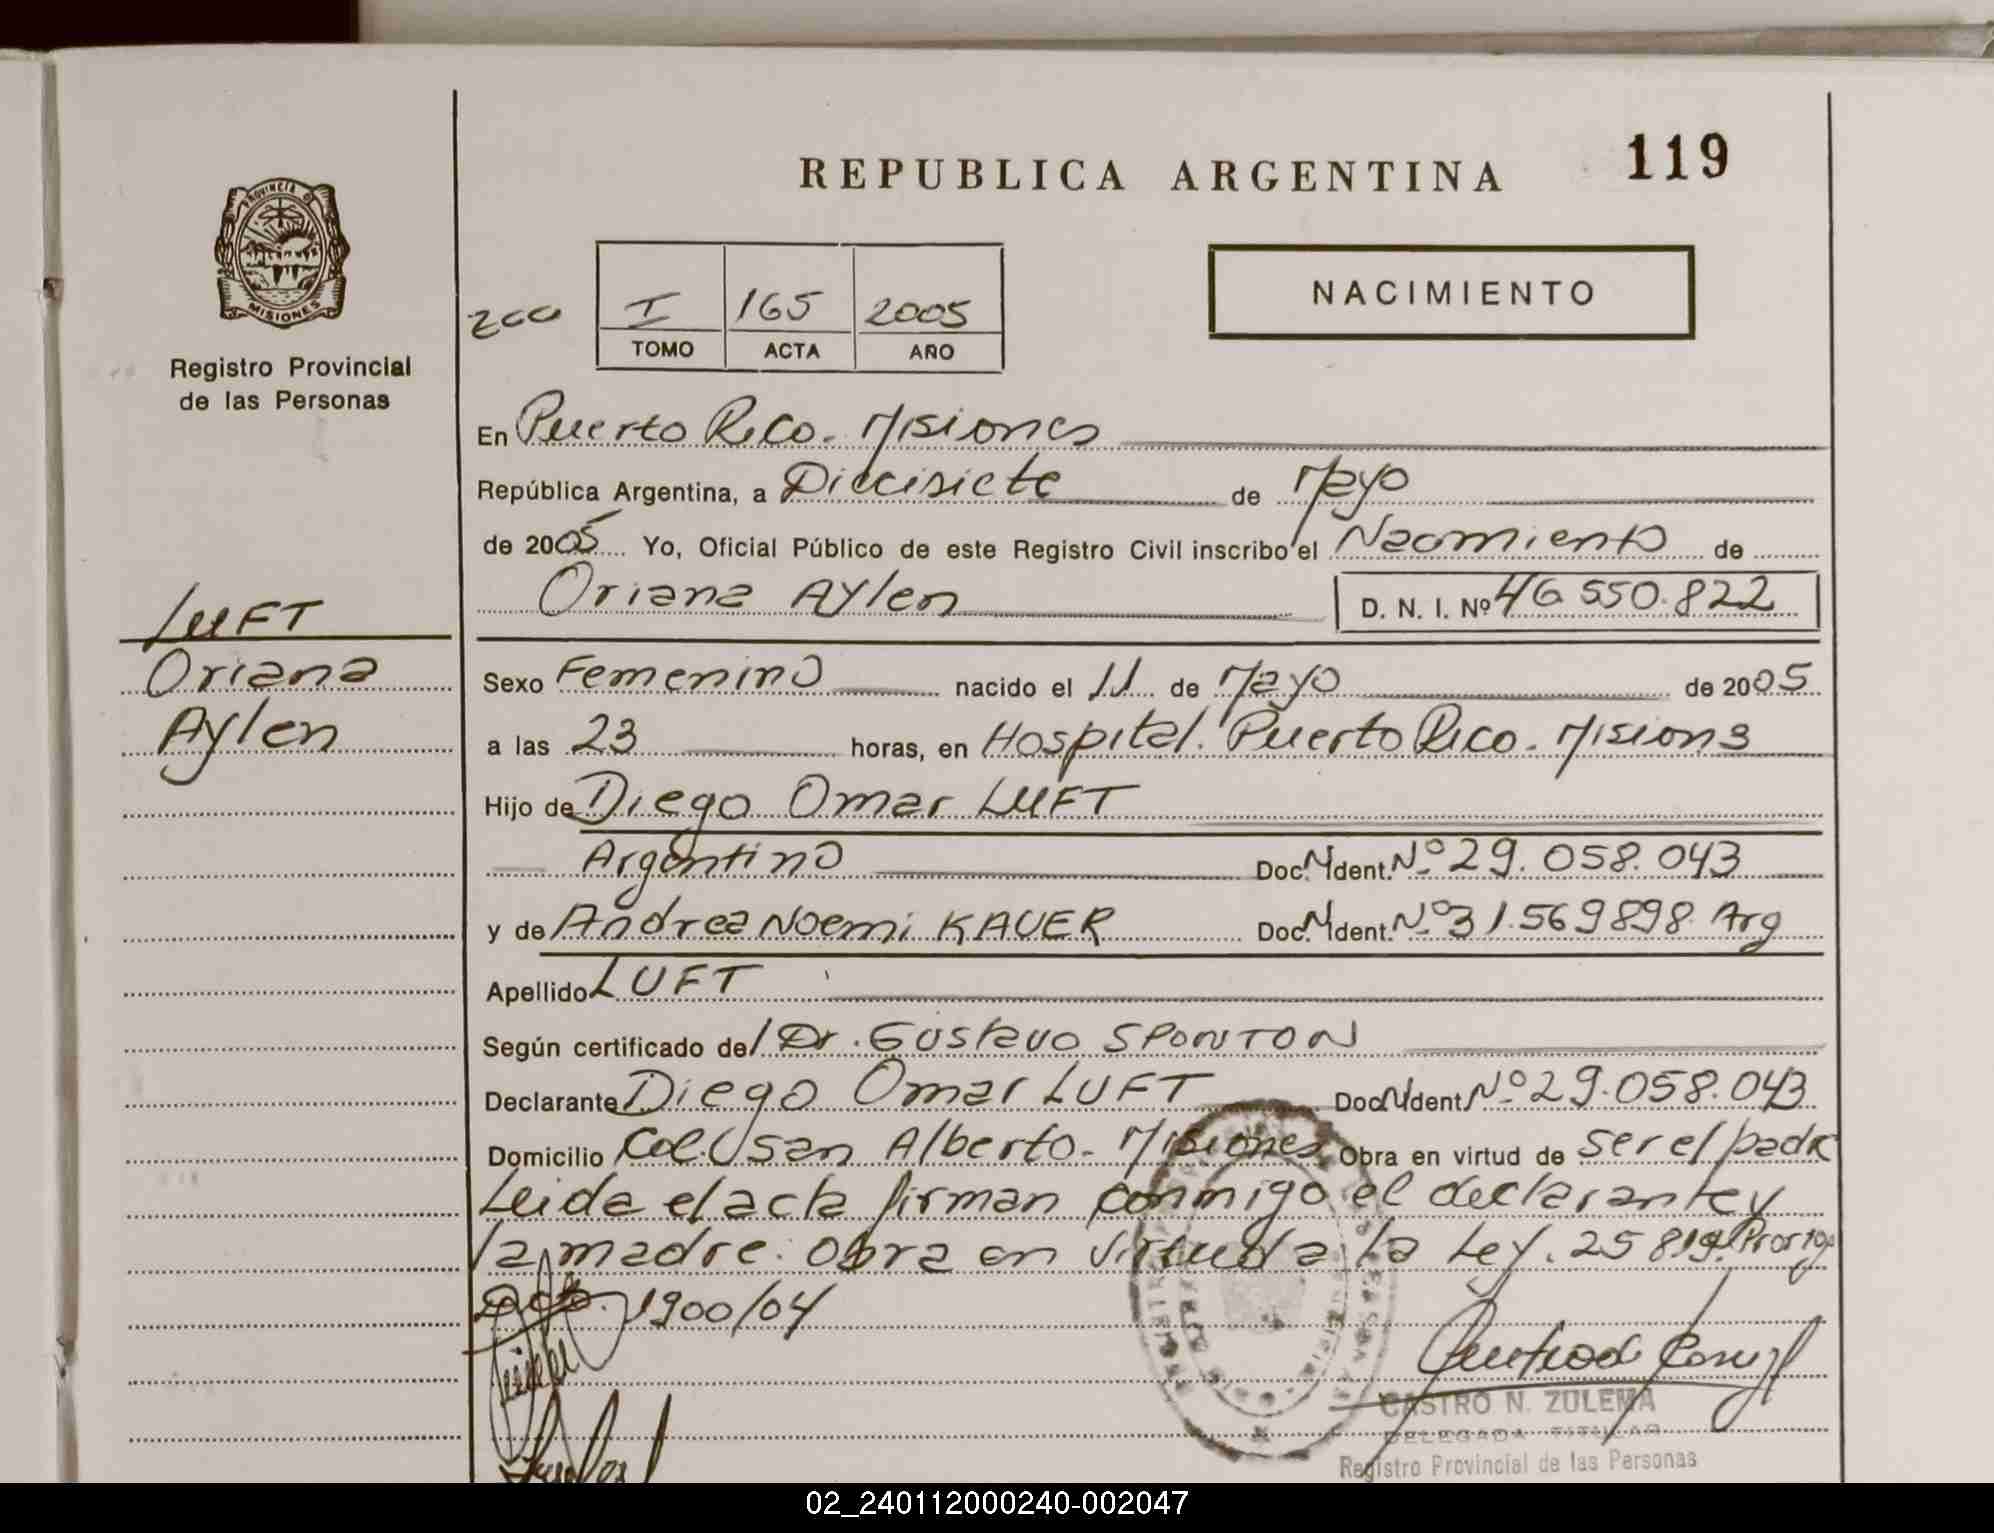 REPUBLICA ARGENTINA 119
PROVINCIA D
MISIONES
Registro Provincial
de las Personas
I 165 2005
TOMO ACTA AÑO
NACIMIENTO
En Puerto Rico. Misiones
República Argentina, a Diecisiete de Mayo
de 2005 Yo, Oficial Público de este Registro Civil inscribo el Nacimiento de
Oriana Aylen D. N. I. Nº 46 550.822
LUFT
Oriana
Aylen
Sexo Femenino nacido el 11 de Mayo de 2005
a las 23 horas, en Hospital. Puerto Rico. Misions
Hijo de Diego Omar LUFT
Argentino Doc. N Ident. Nº 29.058.043
y de Andrea Noemi KAUER Doc. N Ident. Nº 31.569898 Arg
Apellido LUFT
Según certificado del Dr. Gustavo SPONTON
Declarante Diego Omar LUFT Doc. N Ident Nº 29.058.043
Domicilio Col. San Alberto. Misiones Obra en virtud de ser el padre
Leida el acta firman conmigo el declarante y
la madre. Obra en virtud a la Ley. 25819. Prorroga
Dcto. 1900/04
CASTRO N. ZULEMA
DELEGADA TITULAR
Registro Provincial de las Personas
02_240112000240-002047